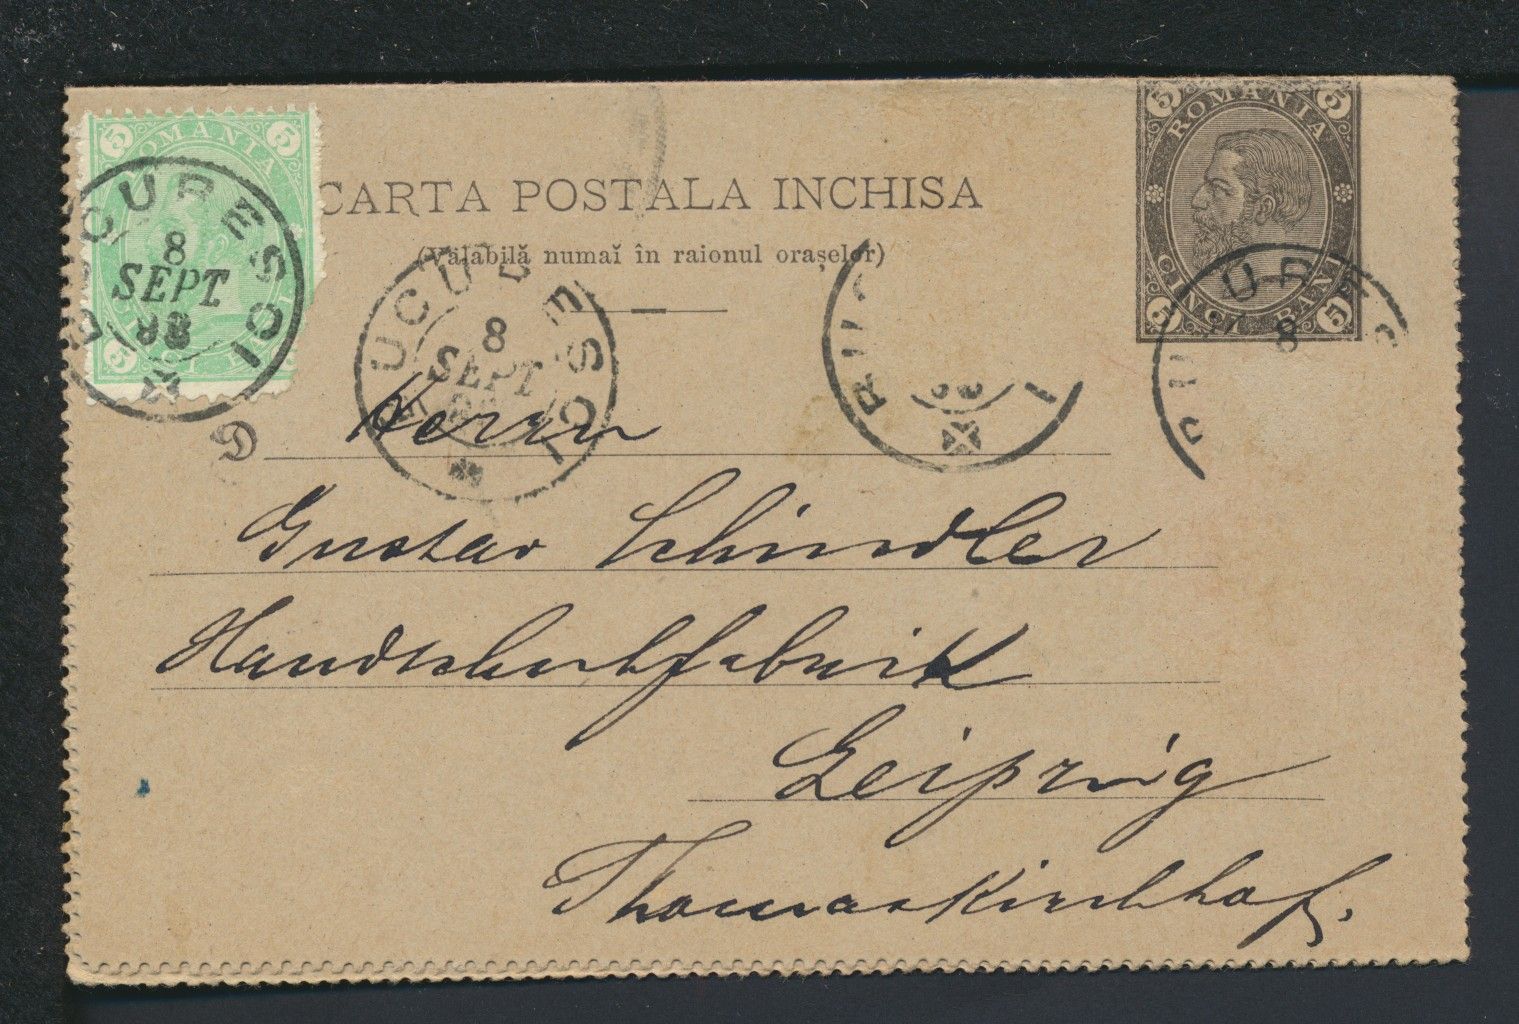 5 ROMANIA 5
5 5
BUCURESCI
8
SEPT
88
CARTA POSTALA INCHISA
(Valabilă numaĭ în raionul orașelor)
5 ROMANIA 5
5 CINCI BANI 5
BUCURESCI
8
SEPT
URE
8
D
Herrn
Gustav Schindler
Handschuhfabrik
Leipzig
Thomaskirchhof.